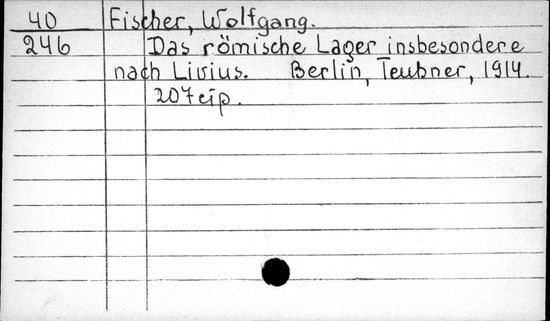 40 Fischer, Wolfgang.
246 Das römische Lager insbesondere
nach Livius. Berlin, Teubner, 1914.
207 p.